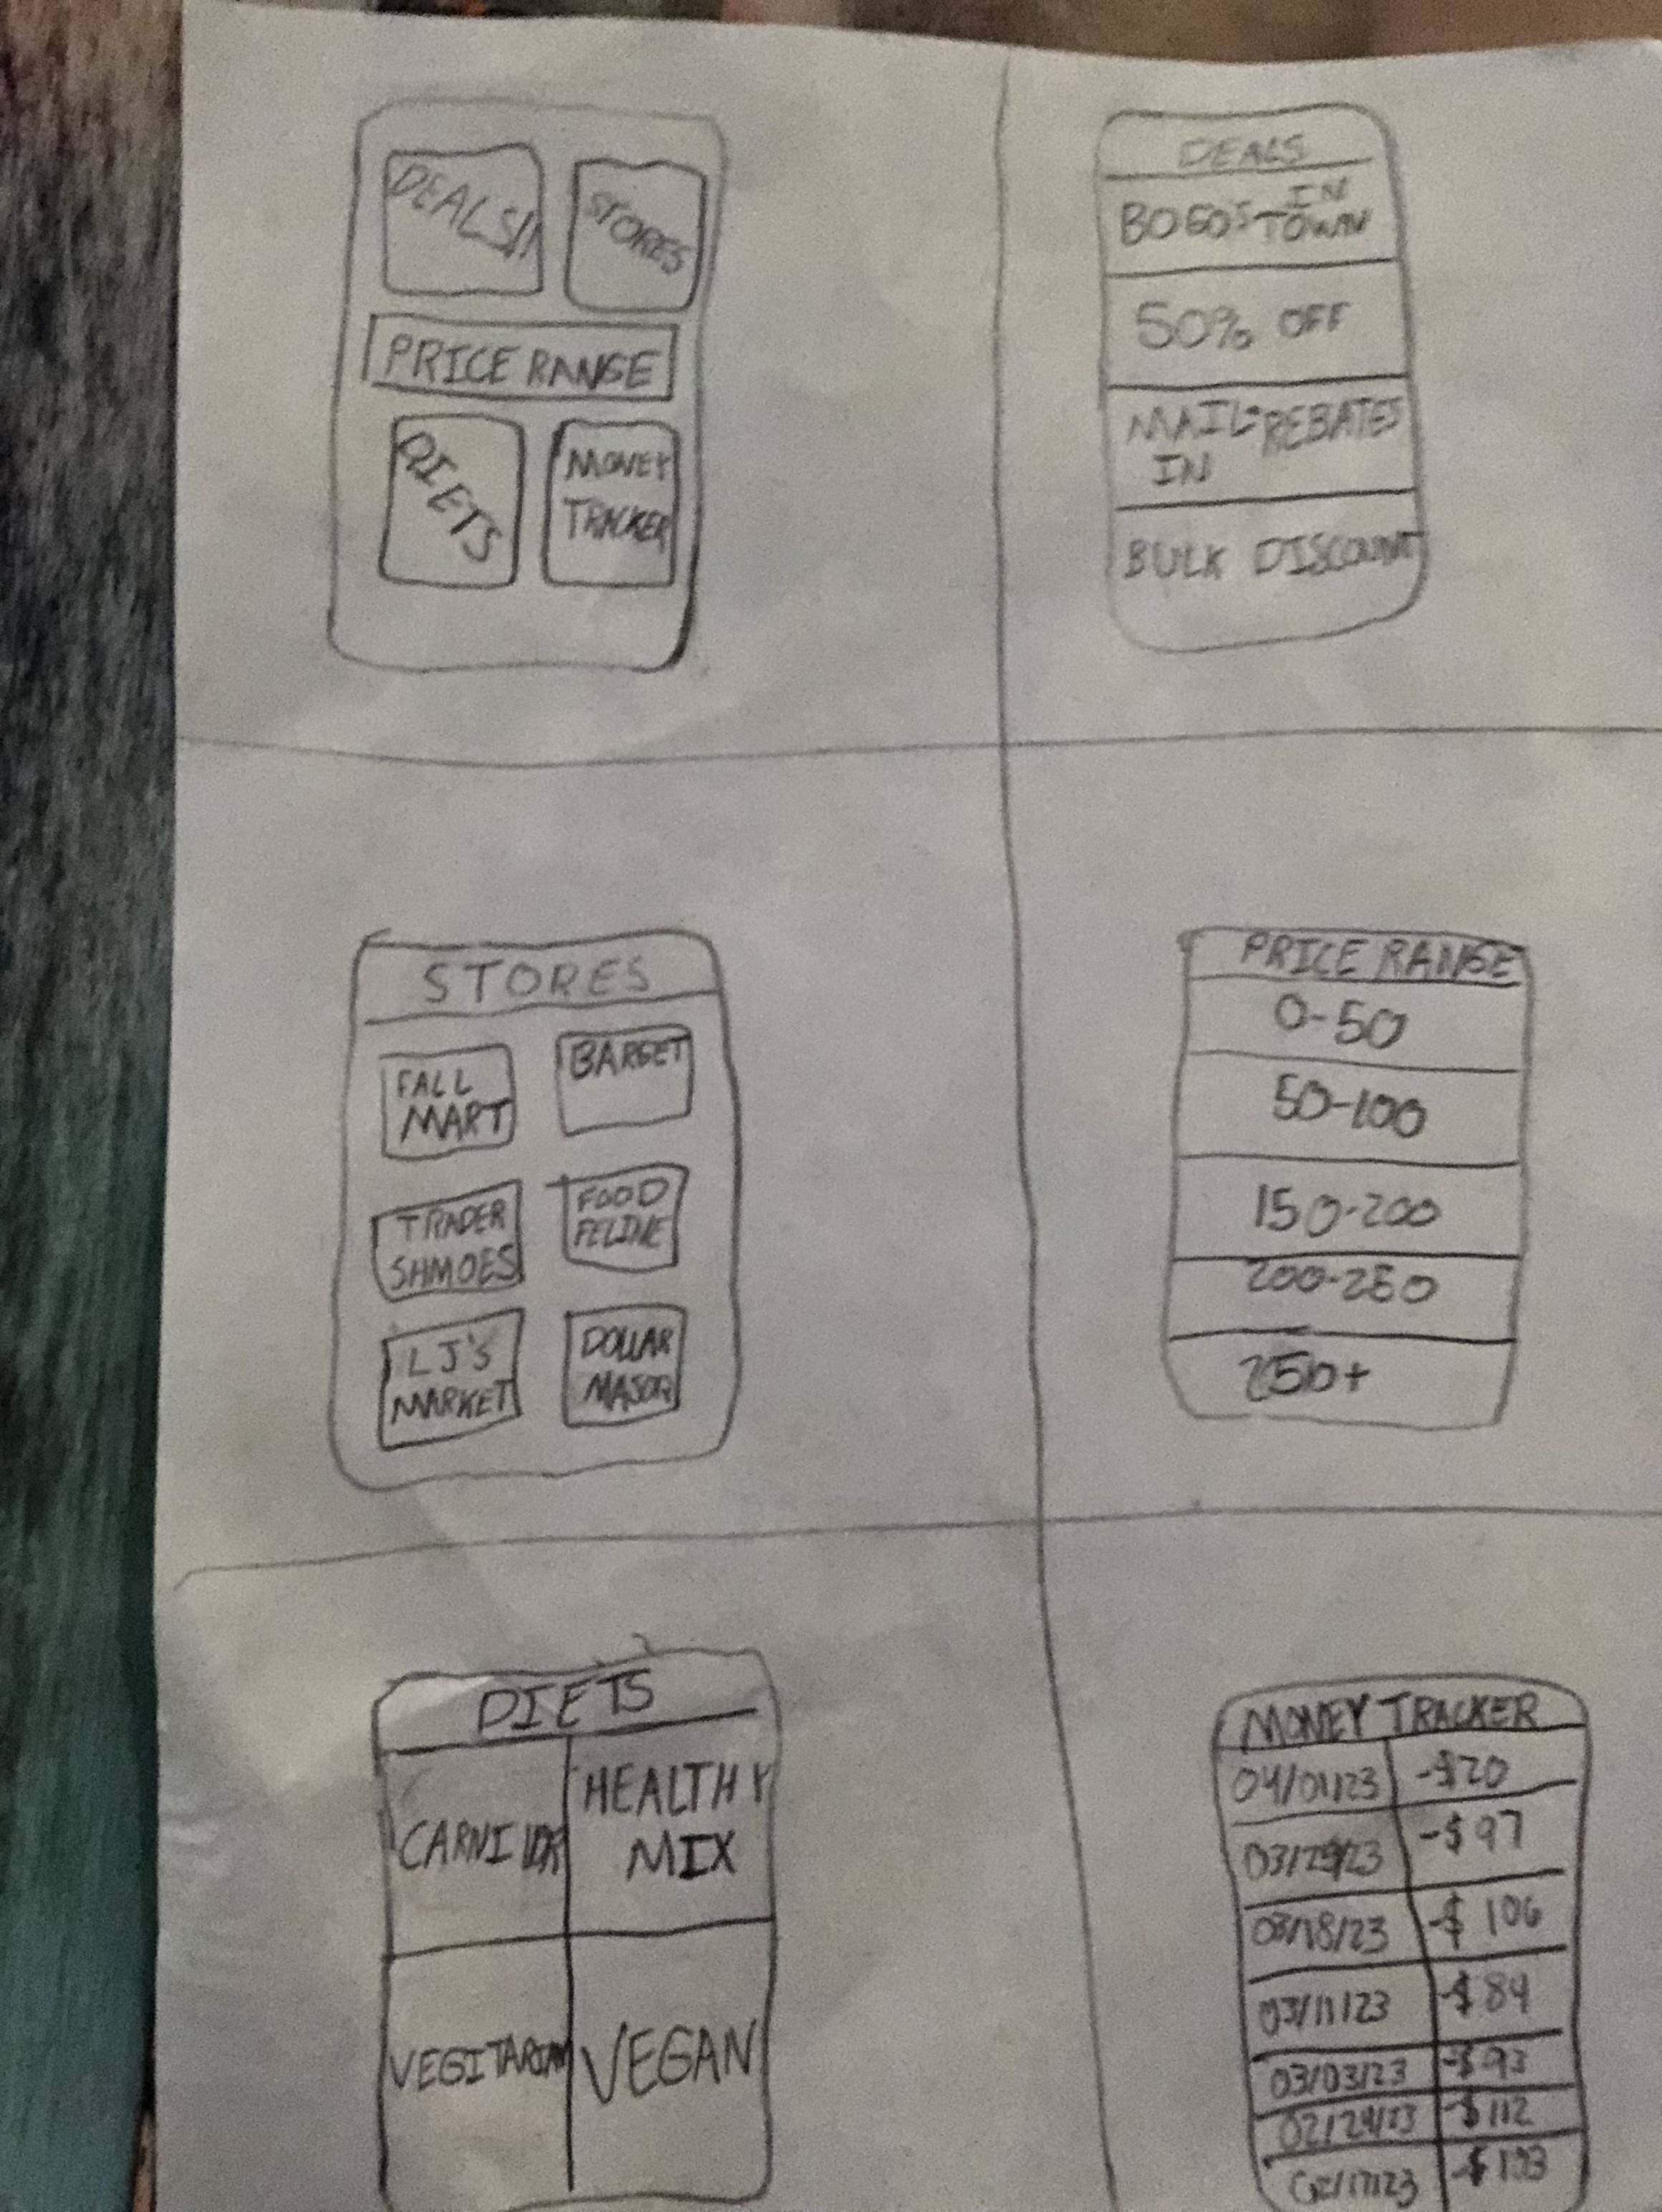 DEALS!!
STORES
PRICE RANGE
DIETS
MONEY
TRACKER
DEALS
BOGO'S IN
TOWN
50% OFF
MAIL-REBATES
IN
BULK DISCOUNT
STORES
FALL
MART
BARGET
TRADER
SHMOES
FOOD
FELINE
LJ'S
MARKET
DOLLAR
MAJOR
PRICE RANGE
0-50
50-100
150-200
200-250
250+
DIETS
CARNIVOR
HEALTHY
MIX
VEGITARIAN
VEGAN
MONEY TRACKER
04/01/23 -$20
03/25/23 -$97
03/18/23 -$106
03/11/23 -$84
03/03/23 -$93
02/24/23 -$112
02/17/23 -$103